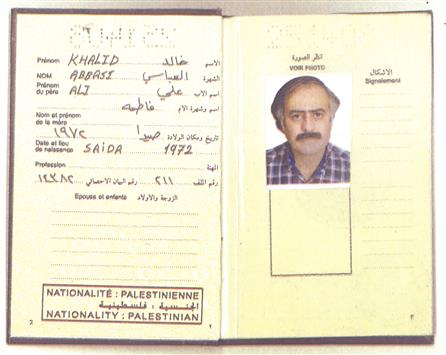 Prénom KHALID خالد الاسم
NOM ABBASI العباسي الشهرة
Prénom du père ALI علي اسم الاب
فاطمه اسم وشهرة الام
Nom et prénom de la mère
١٩٧٢ صيدا تاريخ ومكان الولادة
Date et lieu de naissance SAIDA 1972
Profession المهنة
رقم البيان الاحصائي ٢١١ رقم الملف
Epouse et enfants الزوجة والاولاد
NATIONALITÉ : PALESTINIENNE
الجنسية : فلسطينية
NATIONALITY : PALESTINIAN
2 ٢
انظر الصورة
VOIR PHOTO
الاشكال
Signalement
٣